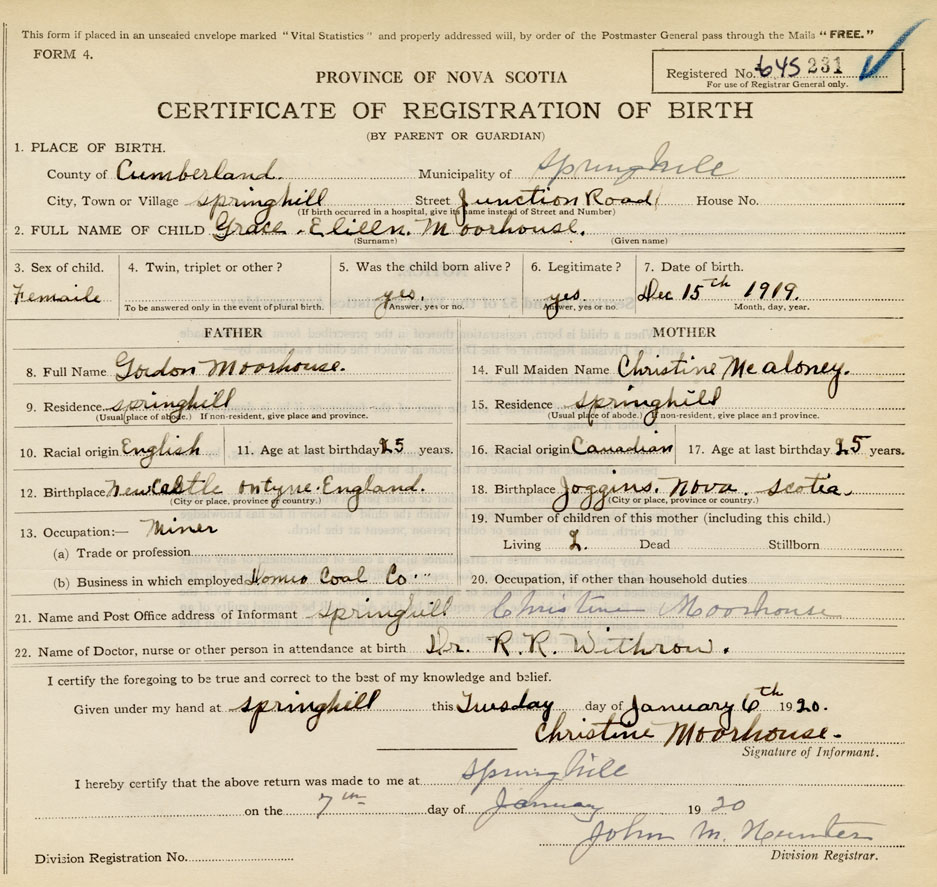 This form if placed in an unsealed envelope marked "Vital Statistics" and properly addressed will, by order of the Postmaster General pass through the Mails "FREE."
FORM 4.
Registered No. 645 231
For use of Registrar General only.
PROVINCE OF NOVA SCOTIA
CERTIFICATE OF REGISTRATION OF BIRTH
(BY PARENT OR GUARDIAN)
1. PLACE OF BIRTH.
County of Cumberland. Municipality of Springhill
City, Town or Village springhill Street Junction Road House No.
(If birth occurred in a hospital, give its name instead of Street and Number)
2. FULL NAME OF CHILD Grace. Elieen. Moorhouse.
(Surname) (Given name)
3. Sex of child. 4. Twin, triplet or other? 5. Was the child born alive? 6. Legitimate? 7. Date of birth.
Femaile yes. yes. Dec 15th 1919.
To be answered only in the event of plural birth. Answer, yes or no. Answer, yes or no. Month, day, year.
FATHER MOTHER
8. Full Name Gordon Moorhouse. 14. Full Maiden Name Christine Mcaloney.
9. Residence springhill 15. Residence springhill
(Usual place of abode.) If non-resident, give place and province. (Usual place of abode.) If non-resident, give place and province.
10. Racial origin English 11. Age at last birthday 25 years. 16. Racial origin Canadian 17. Age at last birthday 25 years.
12. Birthplace Newcastle ontyne. England. 18. Birthplace Joggins. Nova. scotia.
(City or place, province or country.) (City or place, province or country.)
13. Occupation:— Miner 19. Number of children of this mother (including this child.)
(a) Trade or profession Living 2. Dead Stillborn
(b) Business in which employed Domeo Coal Co. 20. Occupation, if other than household duties
21. Name and Post Office address of Informant springhill Christine Moorhouse
22. Name of Doctor, nurse or other person in attendance at birth Dr. R. R. Withrow.
I certify the foregoing to be true and correct to the best of my knowledge and belief.
Given under my hand at springhill this Tuesday day of January 6th 1920.
Christine Moorhouse.
Signature of Informant.
I hereby certify that the above return was made to me at Springhill
on the 7th day of January 1920
John M. Hunter
Division Registrar.
Division Registration No.